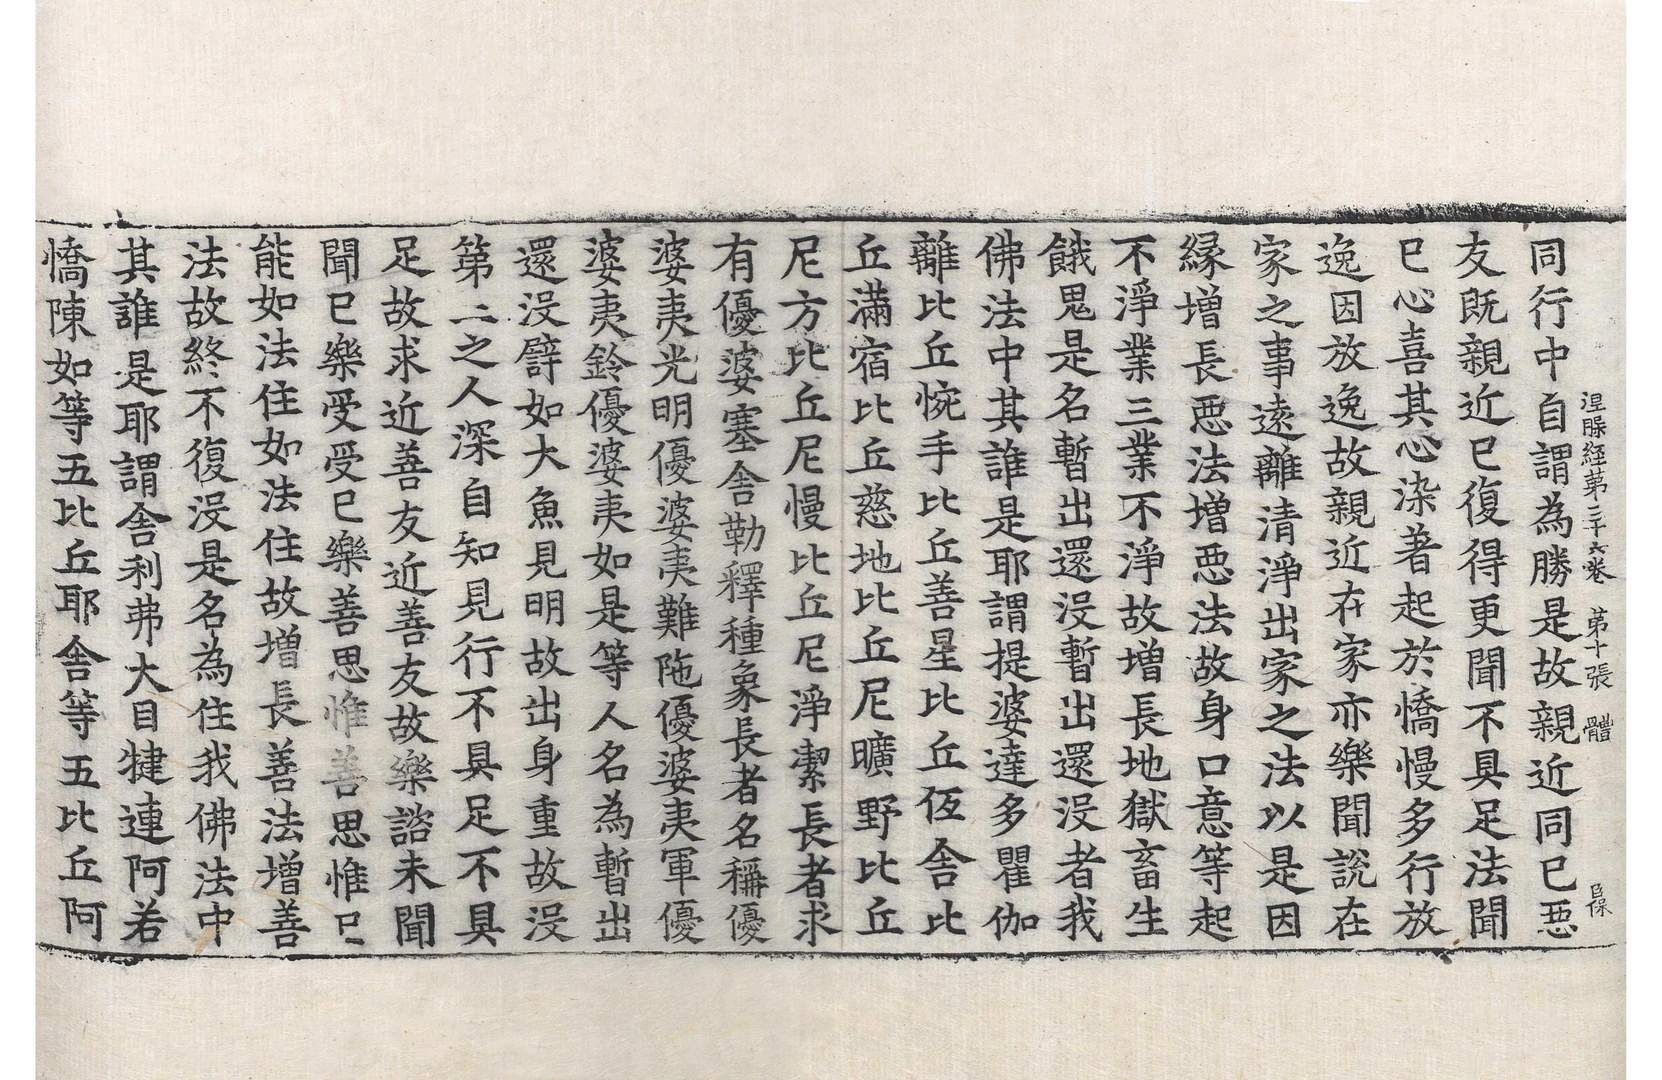 涅槃経第三十六卷 第十張 體 臣保
同行中自謂為勝是故親近同已惡
友既親近已復得更聞不具足法聞
已心喜其心染著起於憍慢多行放
逸因放逸故親近在家亦樂聞說在
家之事遠離清淨出家之法以是因
緣增長惡法增惡法故身口意等起
不淨業三業不淨故增長地獄畜生
餓鬼是名暫出還没暫出還没者我
佛法中其誰是耶謂提婆達多瞿伽
離比丘惋手比丘善星比丘伍舍比
丘滿宿比丘慈地比丘尼曠野比丘
尼方比丘尼慢比丘尼淨潔長者求
有優婆塞舍勒釋種象長者名稱優
婆夷光明優婆夷難陁優婆夷軍優
婆夷鈴優婆夷如是等人名為暫出
還没譬如大魚見明故出身重故没
第二之人深自知見行不具足不具
足故求近善友近善友故樂諮未聞
聞已樂受受已樂善思惟善思惟已
能如法住如法住故增長善法增善
法故終不復没是名為住我佛法中
其誰是耶謂舍利弗大目揵連阿若
憍陳如等五比丘耶舍等五比丘阿